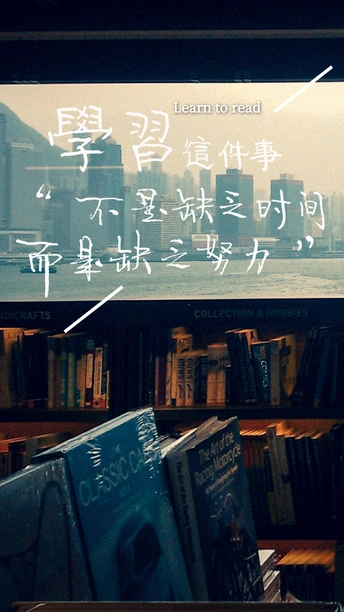 Learn to read
學習這件事
“不是缺乏时间
而是缺乏努力”
NDICRAFTS
COLLECTION & HOBBIES
THE CLASSIC CA
The Art of the
Racing Motorcycle